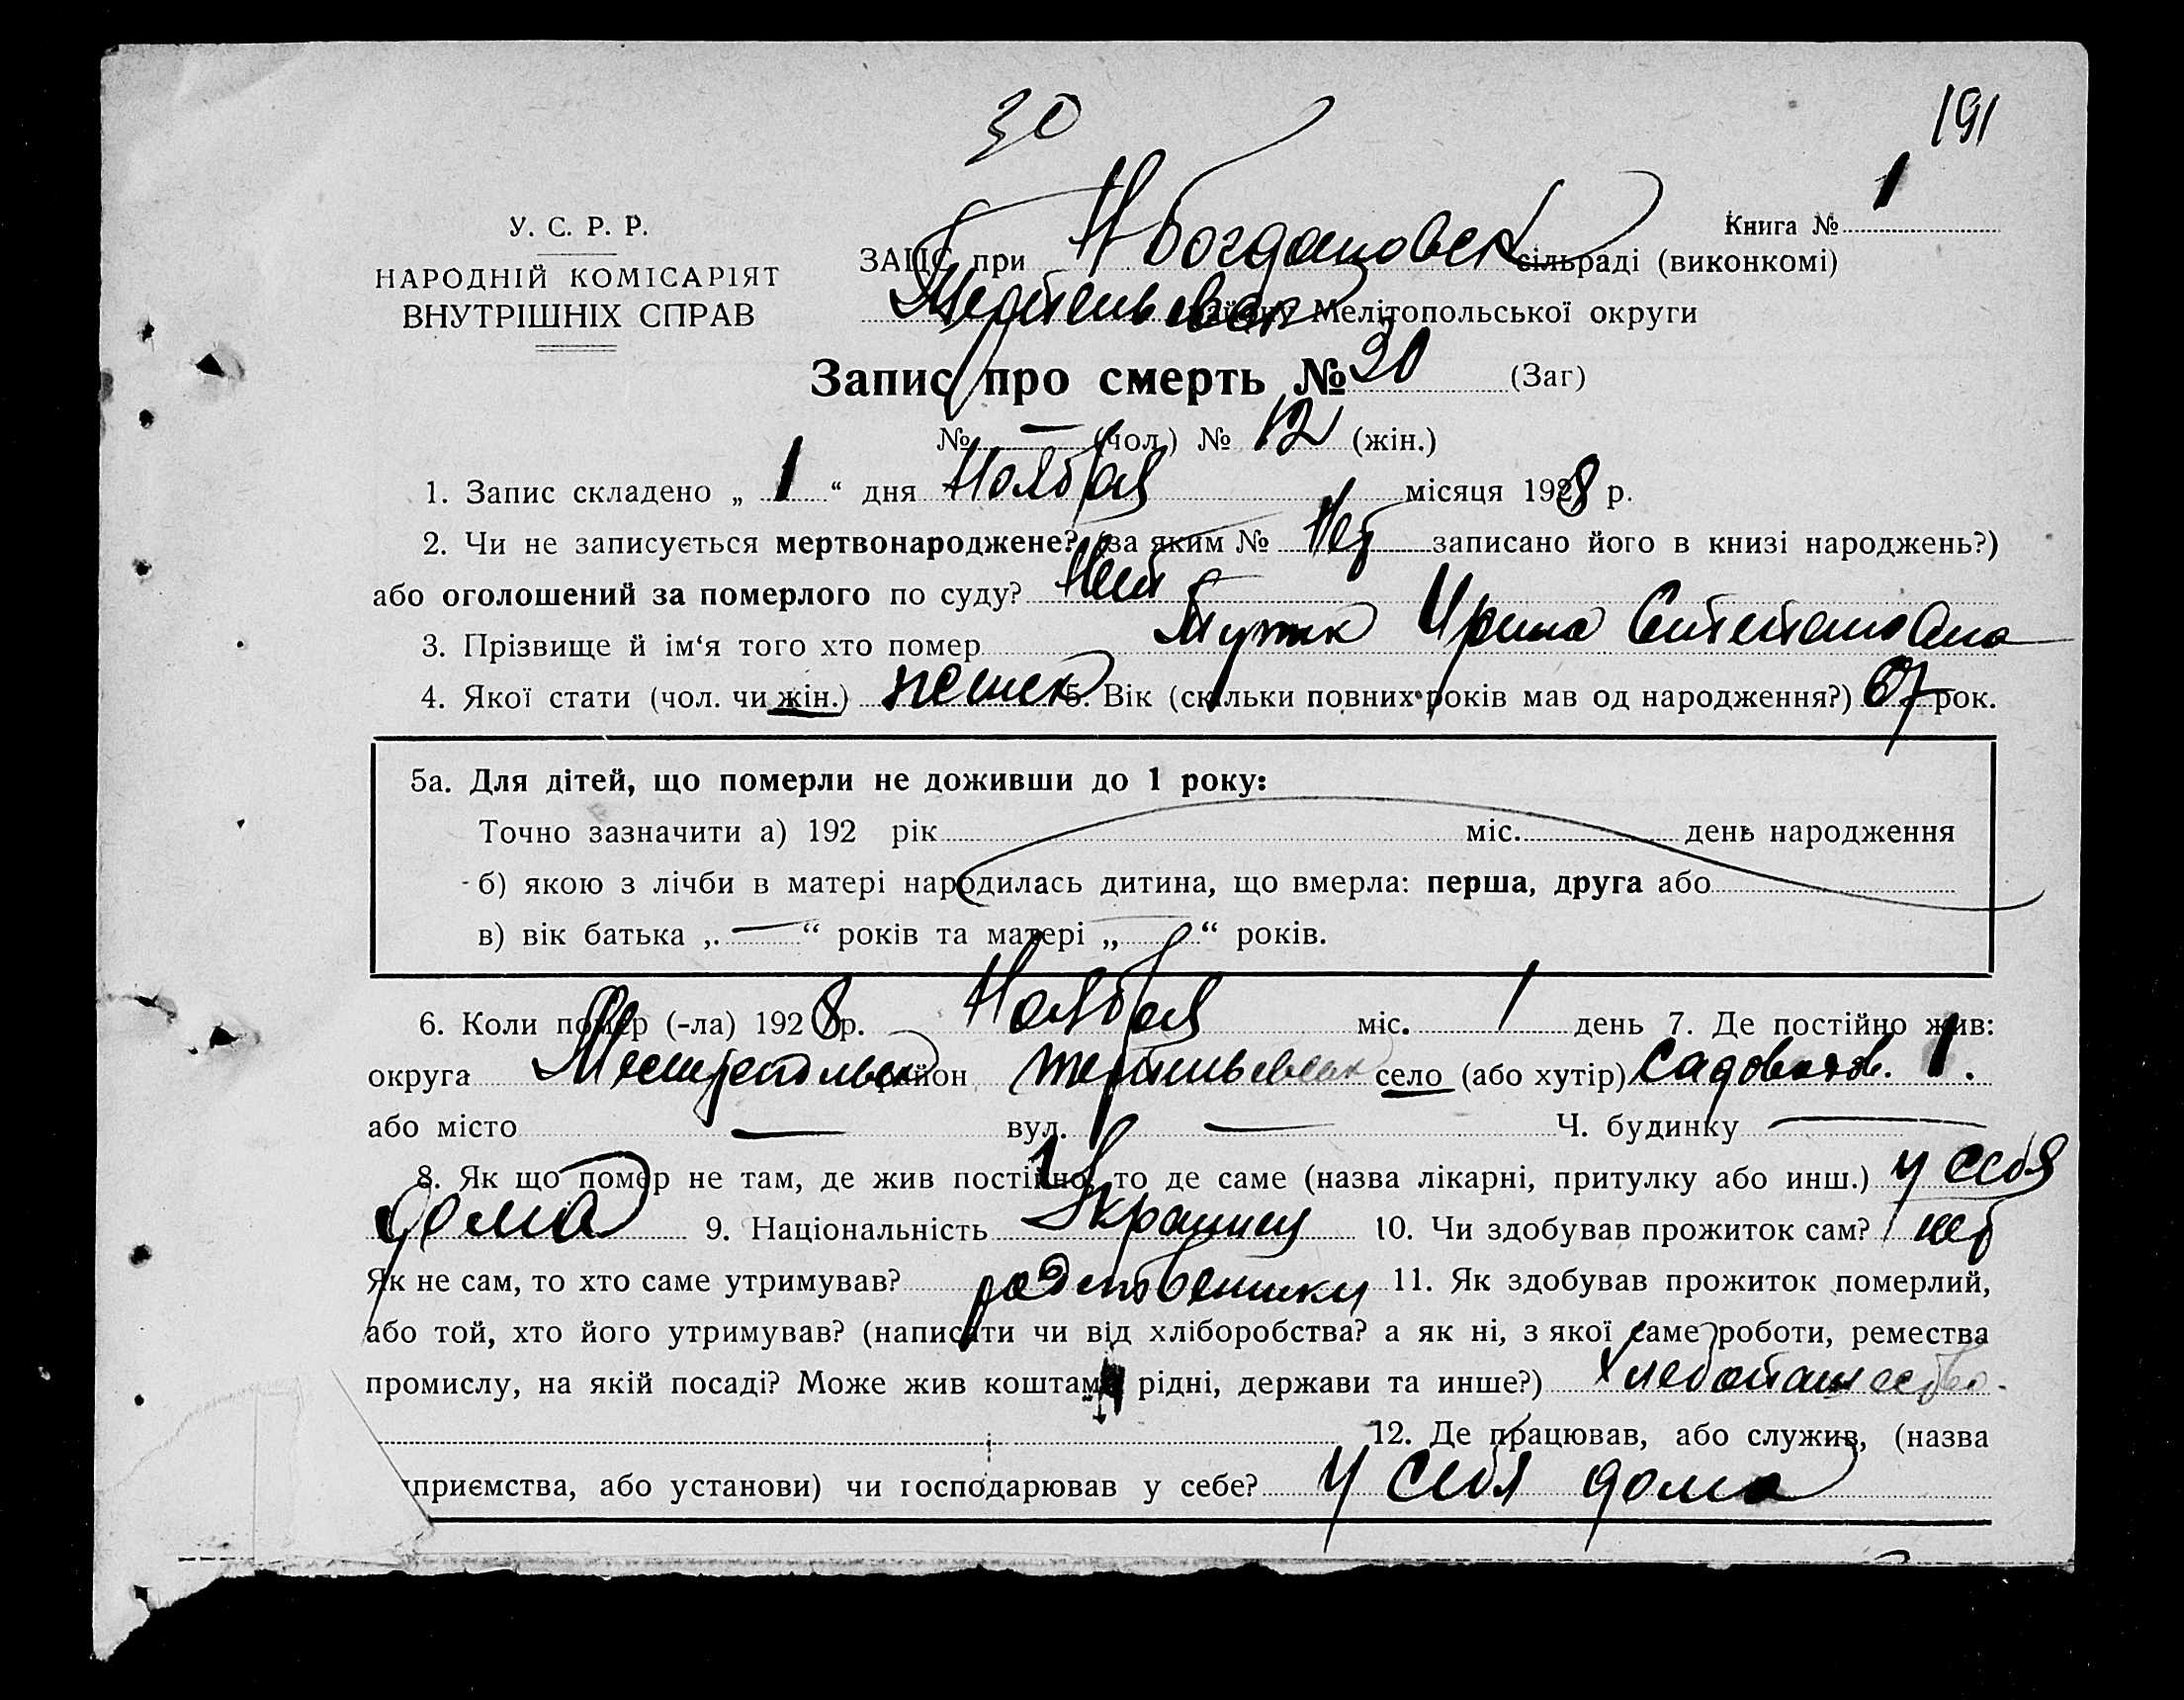 30
191
У. С. Р. Р.
НАРОДНІЙ КОМІСАРІЯТ
ВНУТРІШНІХ СПРАВ
Книга № 1
ЗАГС при Н Богдановск сільраді (виконкомі)
району Мелітопольської округи
Запис про смерть № 30 (Заг)
№ — (чол.) № 12 (жін.)
1. Запис складено „ 1 “ дня Ноября місяця 1928 р.
2. Чи не записується мертвонароджене? (за яким № Нет записано його в книзі народжень?)
або оголошений за померлого по суду? Нет
3. Прізвище й ім‘я того хто помер Ирина Степановна
4. Якої стати (чол. чи жін.) женск 5. Вік (скільки повних років мав од народження?) 67 рок.
5а. Для дітей, що померли не доживши до 1 року:
Точно зазначити а) 192 рік міс. день народження
б) якою з лічби в матері народилась дитина, що вмерла: перша, друга або
в) вік батька „ — “ років та матері „ “ років.
6. Коли помер (-ла) 1928 р. Ноября міс. 1 день 7. Де постійно жив:
округа Мелитопольск район село (або хутір) 1.
або місто — вул. — Ч. будинку —
8. Як що помер не там, де жив постійно, то де саме (назва лікарні, притулку або инш.) у себя
дома 9. Національність Украинц 10. Чи здобував прожиток сам? нет
Як не сам, то хто саме утримував? родственники 11. Як здобував прожиток померлий,
або той, хто його утримував? (написати чи від хліборобства? а як ні, з якої саме роботи, ремества
промислу, на якій посаді? Може жив коштами рідні, держави та инше?) Хлебопашество.
12. Де працював, або служив, (назва
приємства, або установи) чи господарював у себе? У себя дома